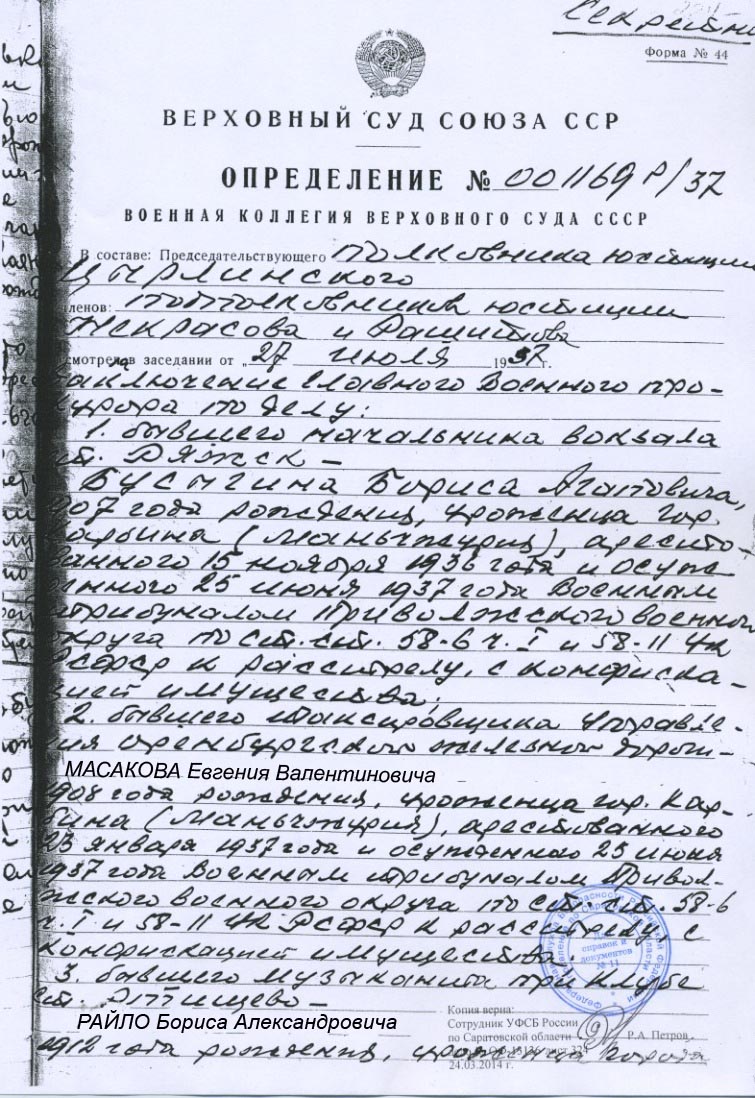 Секретно
Форма № 44
ВЕРХОВНЫЙ СУД СОЮЗА ССР
ОПРЕДЕЛЕНИЕ № 001169 р/37
ВОЕННАЯ КОЛЛЕГИЯ ВЕРХОВНОГО СУДА СССР
В составе: Председательствующего полковника юстиции
Цырлинского
членов: подполковников юстиции
Некрасова и
смотрела в заседании от „27 июля 1957 г.
заключение Главного Военного про-
курора по делу:
1. бывшего начальника вокзала
ст. Ряжск –
Бусыгина Бориса Агаповича,
1907 года рождения, уроженца гор.
Харбина (Маньчжурия), аресто-
ванного 15 ноября 1936 года и осуж-
денного 25 июня 1937 года Военным
трибуналом Приволжского военного
округа по ст.ст. 58-6 ч. I и 58-11 УК
РСФСР к расстрелу, с конфиска-
цией имущества;
2. бывшего таксировщика Управле-
ния Оренбургской железной дороги –
МАСАКОВА Евгения Валентиновича
1908 года рождения, уроженца гор. Хар-
бина (Маньчжурия), арестованного
23 января 1937 года и осужденного 25 июня
1937 года Военным трибуналом Привол-
жского военного округа по ст.ст. 58-6
ч. I и 58-11 УК РСФСР к расстрелу с
конфискацией имущества;
3. бывшего музыканта при клубе
ст. Ртищево –
РАЙЛО Бориса Александровича
1912 года рождения, уроженца города
справок и
документов
№ 11
Копия верна:
Сотрудник УФСБ России
по Саратовской области Р.А. Петров
лист 324
24.03.2014 г.